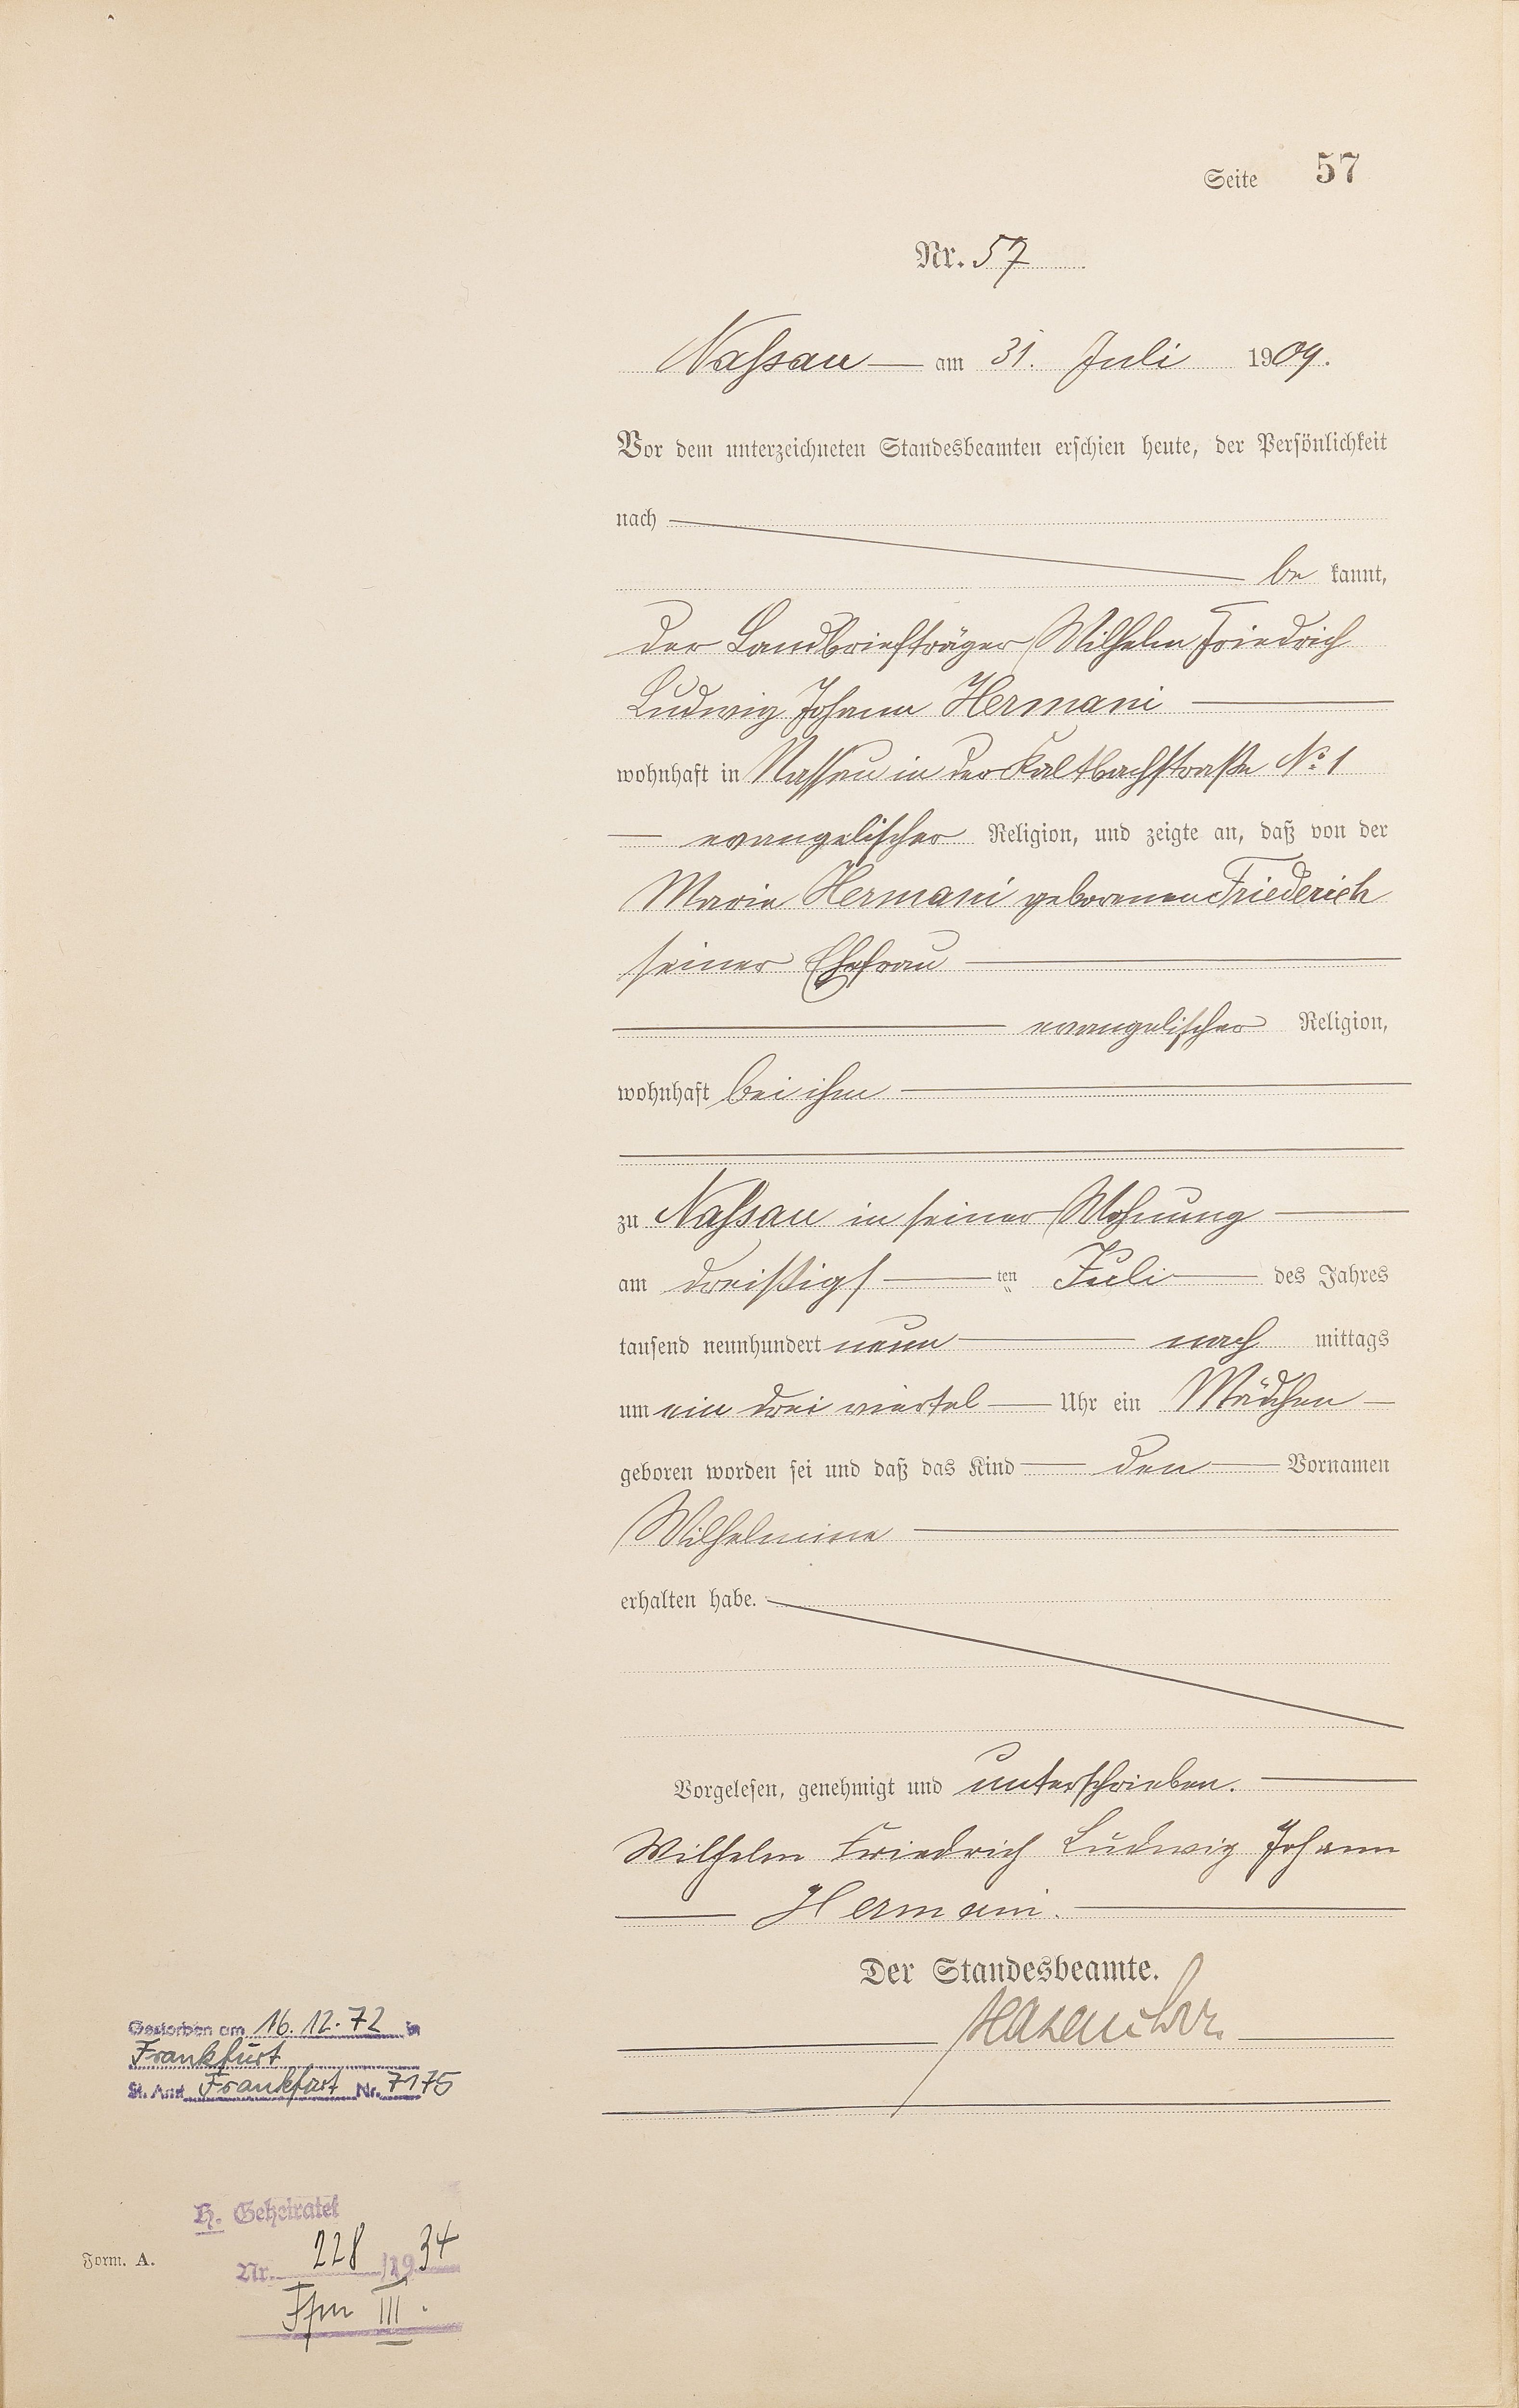 Seite 57
Nr. 57
Nassau — am 31. Juli 1909.
Vor dem unterzeichneten Standesbeamten erschien heute, der Persönlichkeit
nach
be kannt,
der Landbriefträger Wilhelm Friedrich
Ludwig Johann Hermani
wohnhaft in Nassau in der Kaltbachstraße No. 1
evangelischer Religion, und zeigte an, daß von der
Marie Hermani geborenen Friederich
seiner Ehefrau
evangelischer Religion,
wohnhaft bei ihm
zu Nassau in seiner Wohnung
am dreißigs ten Juli des Jahres
tausend neunhundert neun nach mittags
um ein drei viertel Uhr ein Mädchen
geboren worden sei und daß das Kind den Vornamen
Wilhelmine
erhalten habe.
Vorgelesen, genehmigt und unterschrieben.
Wilhelm Friedrich Ludwig Johann
Hermani.
Der Standesbeamte.
Gestorben am 16.12.72 in
Frankfurt
St. Amt Frankfurt Nr. 7175
H. Geheiratet
Nr. 228 /1934
Ffm III.
Form. A.